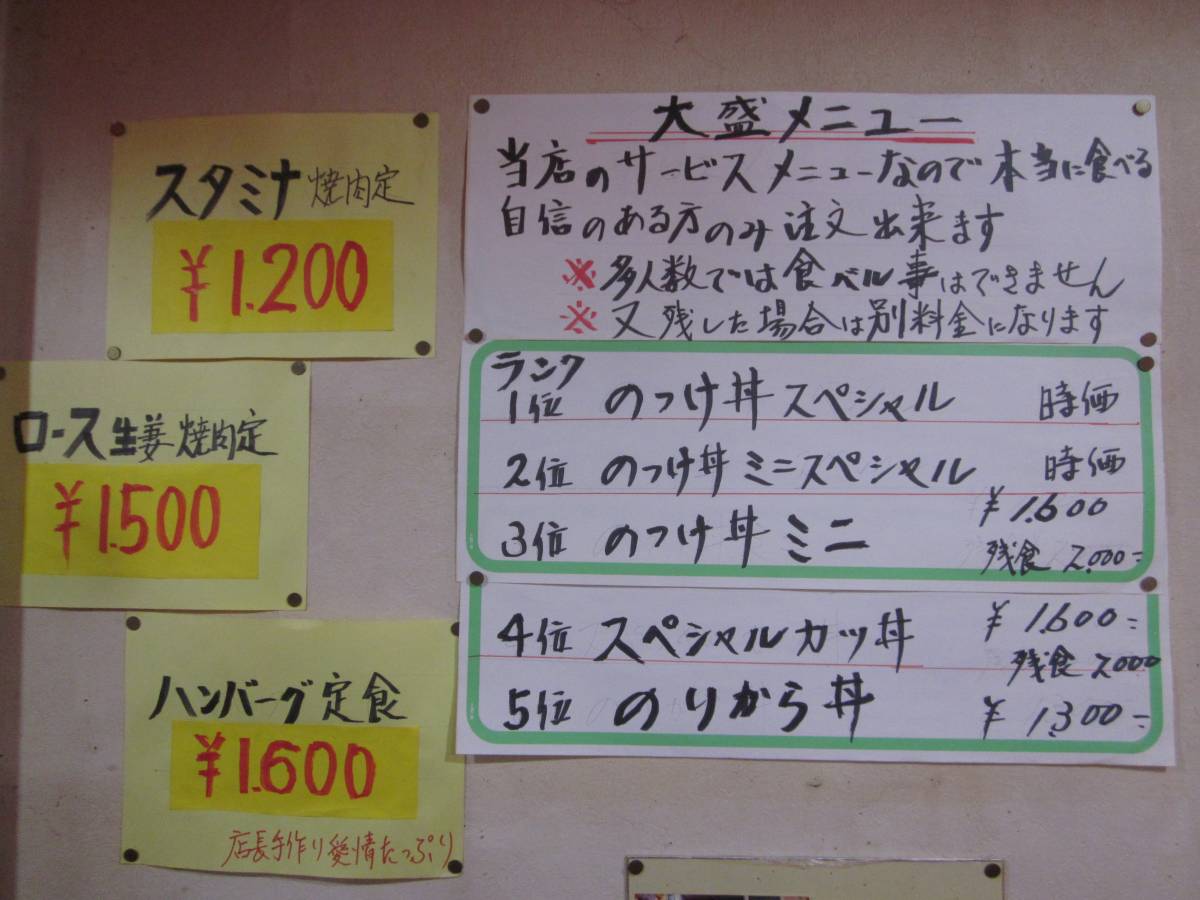 スタミナ焼肉定
¥1.200
ロース生姜焼肉定
¥1.500
ハンバーグ定食
¥1.600
店長手作り愛情たっぷり
大盛メニュー
当店のサービスメニューなので本当に食べる
自信のある方のみ注文出来ます
※多人数では食ベル事はできません
※又残した場合は別料金になります
ランク
1位 のっけ丼スペシャル 時価
2位 のっけ丼ミニスペシャル 時価
3位 のっけ丼ミニ ¥1.600
残食 2.000-
4位 スペシャルカツ丼 ¥1.600-
残食 2.000
5位 のりから丼 ¥1.300-